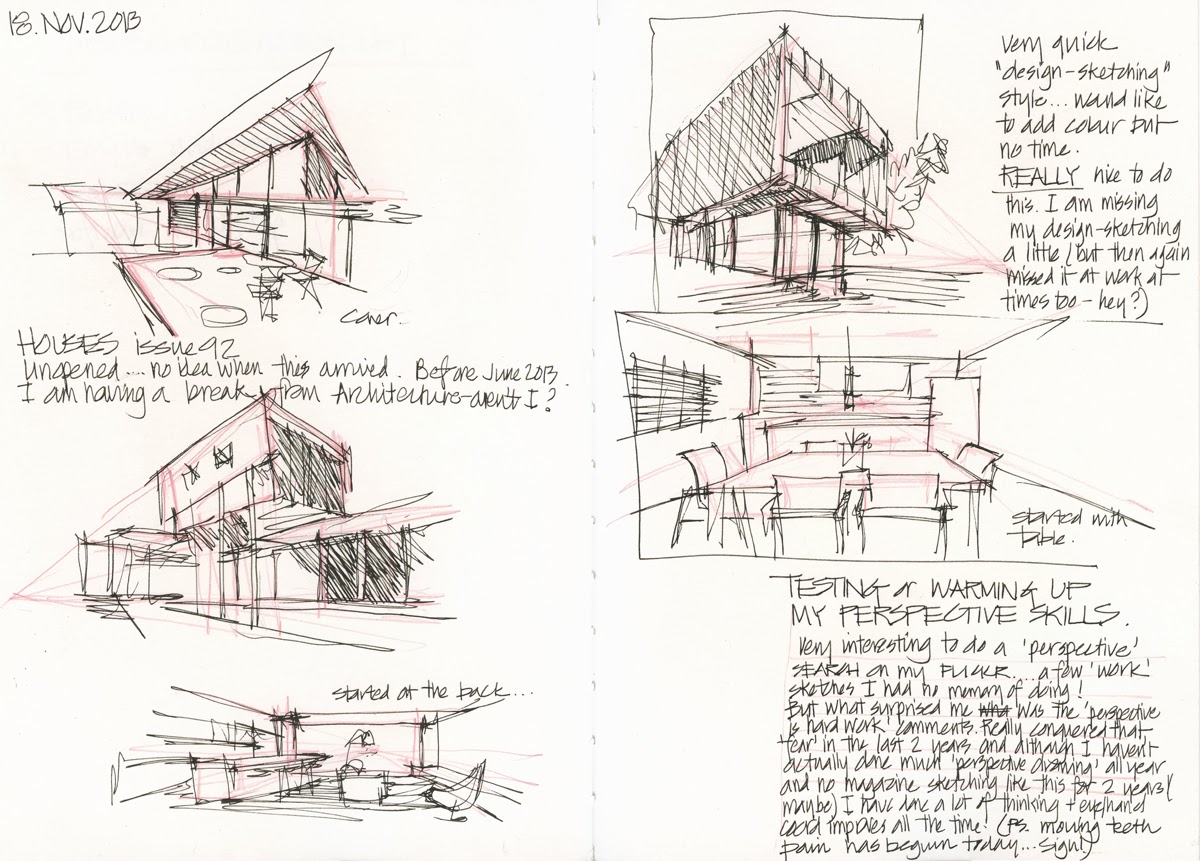 18. NOV. 2013
cover..
HOUSES issue 92
unopened.... no idea when this arrived. Before June 2013.
I am having a break from Architecture-aren't I?
started at the back...
Very quick
"design-sketching"
style... would like
to add colour but
no time.
REALLY nice to do
this. I am missing
my design-sketching
a little (but then again
missed it at work at
times too - hey?)
started with
table.
TESTING or WARMING UP
MY PERSPECTIVE SKILLS.
Very interesting to do a 'perspective'
SEARCH on my FLICKR.... a few 'work'
sketches I had no memory of doing!
But what surprised me was the 'perspective
is hard work' comments. Really conquered that
'fear' in the last 2 years and although I haven't
actually done much 'perspective drawing' all year
and no magazine sketching like this for 2 years (
maybe) I have done a lot of thinking + eye/hand
coord improves all the time! (PS. moving teeth
pain has begun today... sigh!)